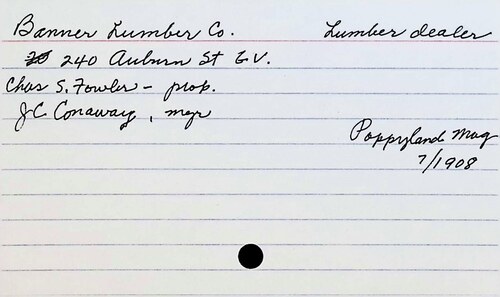 Banner Lumber Co. Lumber dealer
240 Auburn St G.V.
Chas S. Fowler - prop.
J C Conaway, mgr
Poppyland Mag
7/1908